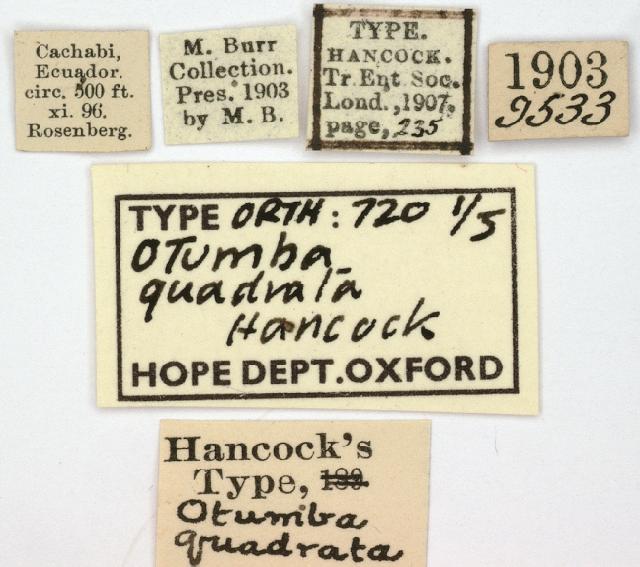 Cachabi,
Ecuador.
circ. 500 ft.
xi. 96.
Rosenberg.
M. Burr
Collection.
Pres. 1903
by M. B.
TYPE.
HANCOCK.
Tr. Ent. Soc.
Lond., 1907,
page, 235
1903
9533
TYPE ORTH: 720 1/5
Otumba
quadrata
Hancock
HOPE DEPT. OXFORD
Hancock's
Type,
Otumba
quadrata